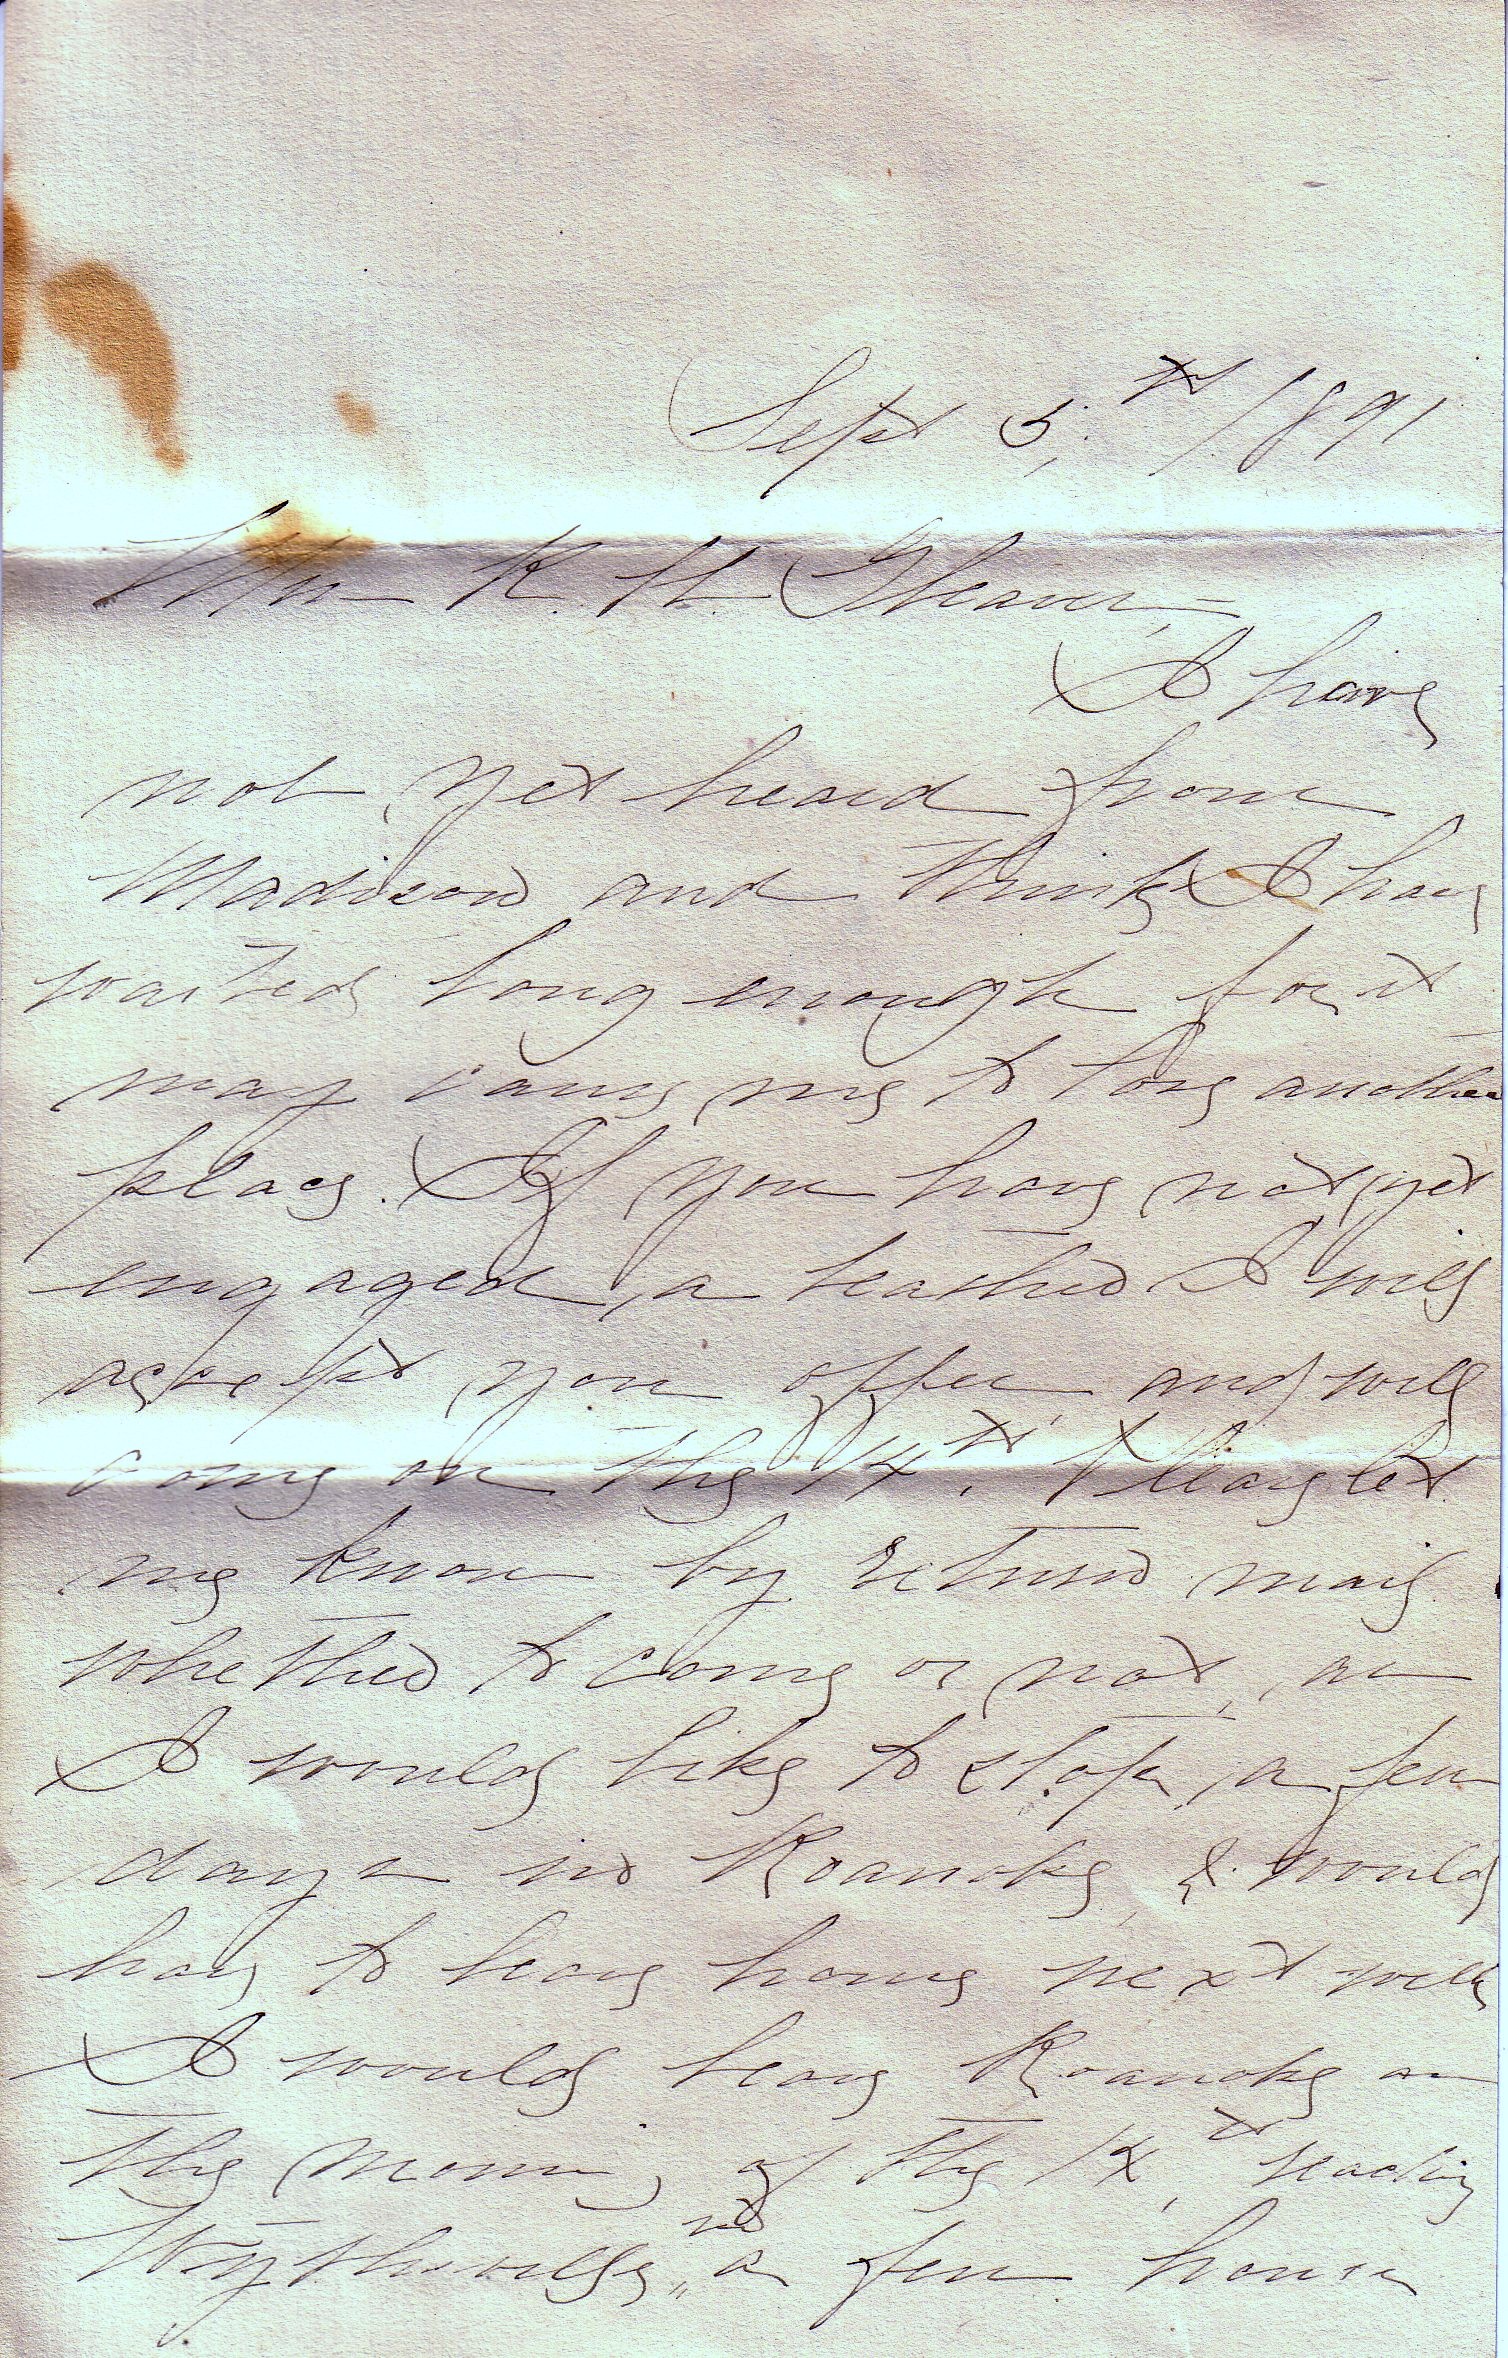 Sept 5,th 1891
Mr. R. H. Gleaves,
I have
not yet heard from
Madison and think I have
waited long enough for it
may cause me to lose another
place. If you have not yet
engaged a teacher I will
accept your offer and will
come on the 14th. Please let
me know by return mail
whether to come or not, as
I would like to stop a few
days in Roanoke & would
have to leave home next week
I would leave Roanoke on
the morning of the 14th reaching
Wytheville, in a few hours